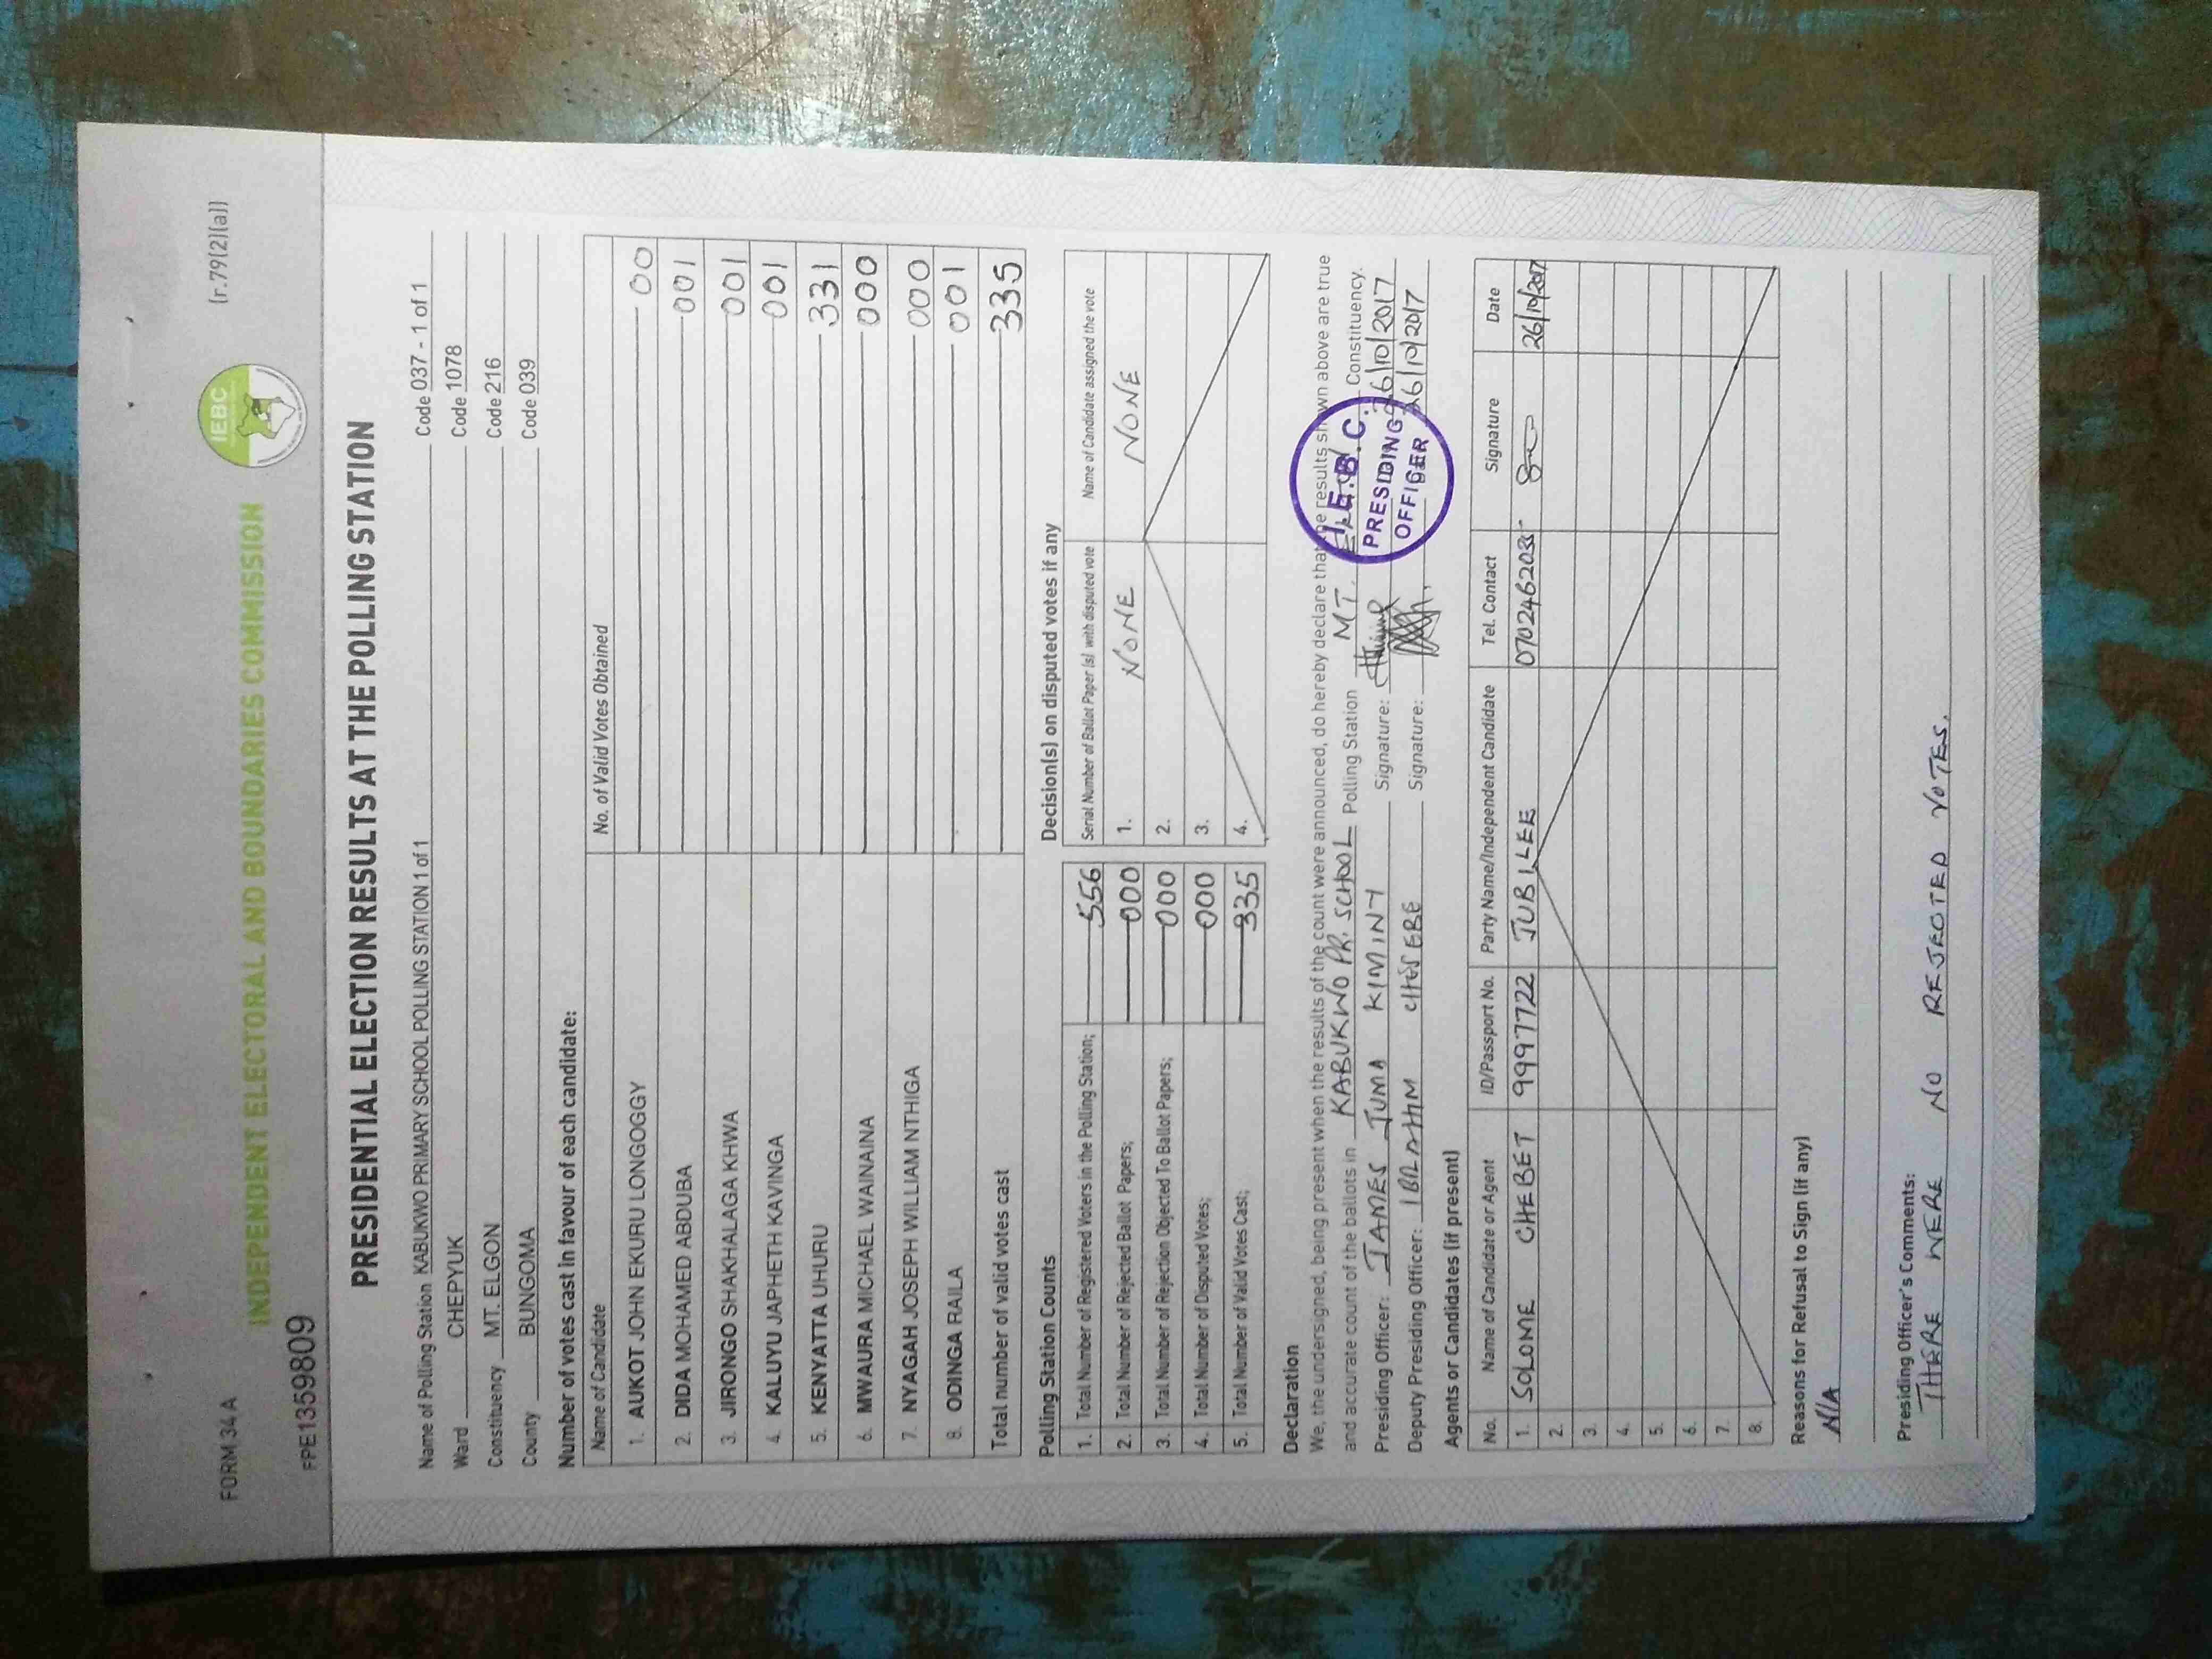 FORM 34A
(r.79(2)(a))
INDEPENDENT ELECTORAL AND BOUNDARIES COMMISSION
IEBC
FPE1359809
PRESIDENTIAL ELECTION RESULTS AT THE POLLING STATION
Name of Polling Station KABUKWO PRIMARY SCHOOL POLLING STATION 1 of 1 Code 037 - 1 of 1
Ward CHEPYUK Code 1078
Constituency MT. ELGON Code 216
County BUNGOMA Code 039
Number of votes cast in favour of each candidate:
Name of Candidate No. of Valid Votes Obtained
1. AUKOT JOHN EKURU LONGOGGY 00
2. DIDA MOHAMED ABDUBA 001
3. JIRONGO SHAKHALAGA KHWA 001
4. KALUYU JAPHETH KAVINGA 001
5. KENYATTA UHURU 331
6. MWAURA MICHAEL WAINAINA 000
7. NYAGAH JOSEPH WILLIAM NTHIGA 000
8. ODINGA RAILA 001
Total number of valid votes cast 335
Polling Station Counts
1. Total Number of Registered Voters in the Polling Station; 556
2. Total Number of Rejected Ballot Papers; 000
3. Total Number of Rejection Objected To Ballot Papers; 000
4. Total Number of Disputed Votes; 000
5. Total Number of Valid Votes Cast; 335
Decision(s) on disputed votes if any
Serial Number of Ballot Paper (s) with disputed vote Name of Candidate assigned the vote
1. NONE NONE
2.
3.
4.
Declaration
We, the undersigned, being present when the results of the count were announced, do hereby declare that the results shown above are true
and accurate count of the ballots in KABUKWO PR. SCHOOL Polling Station MT. Constituency.
Presiding Officer: JAMES JUMA KIMINY Signature: 26/10/2017
Deputy Presiding Officer: IBRAHIM Signature: 26/10/2017
I.E.B.C.
PRESIDING
OFFICER
Agents or Candidates (if present)
No. Name of Candidate or Agent ID/Passport No. Party Name/Independent Candidate Tel. Contact Signature Date
1. SOLOME CHEBET 9997722 JUBILEE 0702462035 26/10/2017
2.
3.
4.
5.
6.
7.
8.
Reasons for Refusal to Sign (if any)
N/A
Presiding Officer's Comments:
THERE WERE NO REJECTED VOTES.